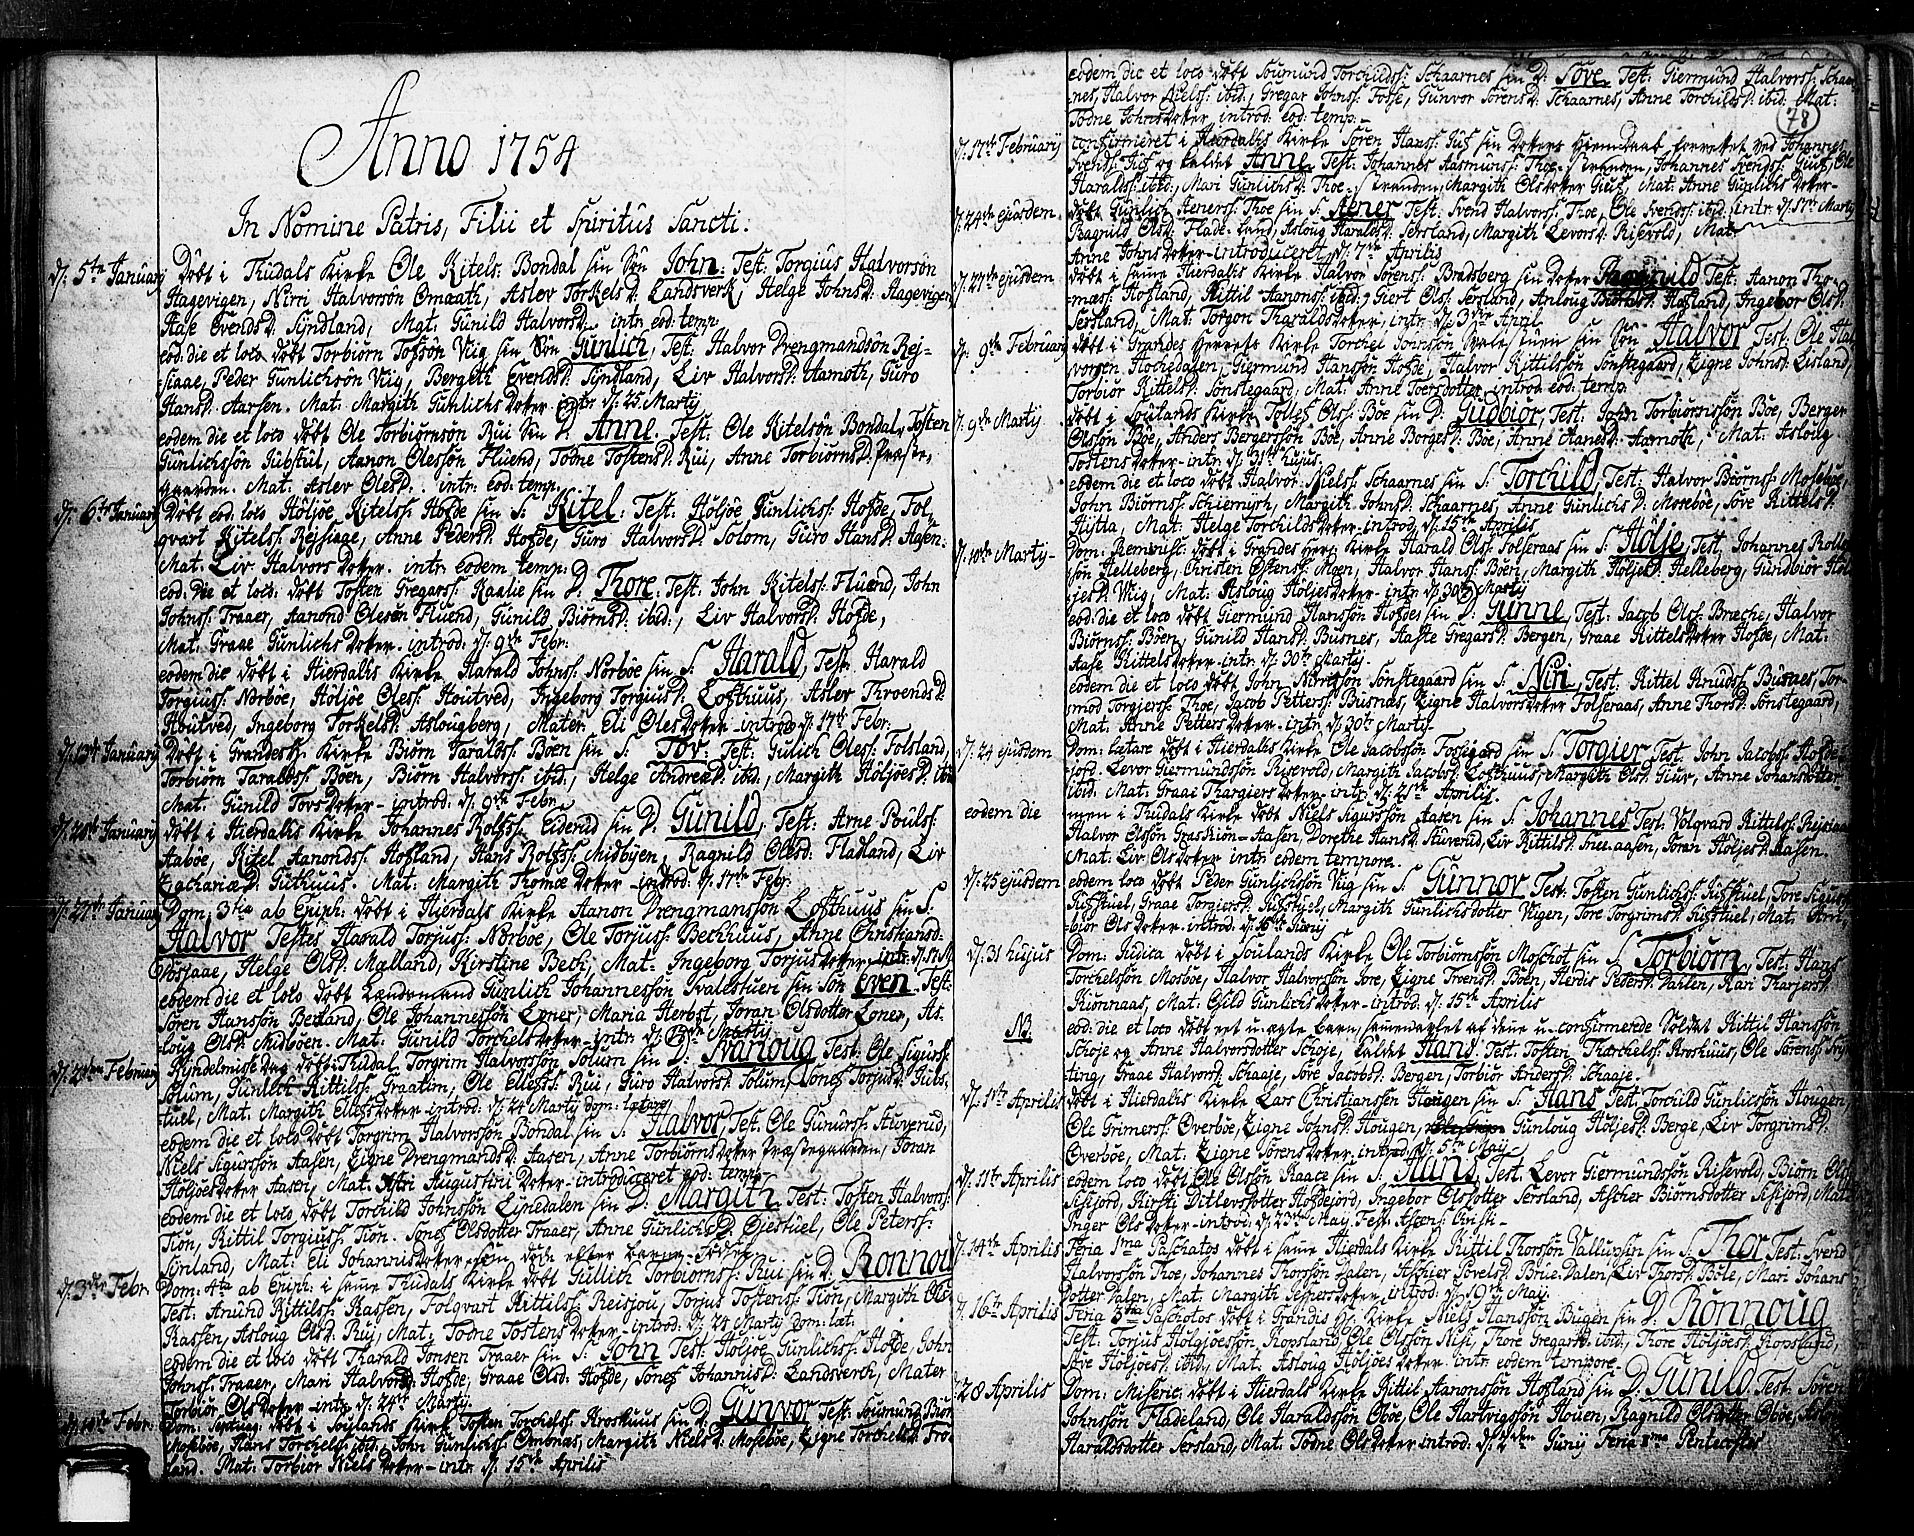 Anno 1754
In Nomine Patris, Filii et Spiritus Sancti.
d: 5te January Døbt i Tudals Kirke Ole Kitels: Bondal sin Søn John. Test: Torgius Halvorsøn
Hagevigen, Nirri Halvorsøn Omaath, Aslev Torkelsd: Landsverk, Helge Johnsd: Hagevigen,
Aase Evendsd: Syndland, Mat: Gunild Halvorsd: intr: eod: temp
eod: die et loco døbt Torbiørn Tofsøn Viig sin Søn Gunlich, Test: Halvor Drengmandsøn Rej-
siaae, Peder Gunlichsøn Viig, Bergith Evendsd: Syndland, Liv Halvorsd: Aamoth, Guro
Hansd: Aarsen. Mat: Margith Gunlichsdoter intr: d: 25 Marty
eodem die et loco døbt Ole Torbiørnsøn Rui sin D. Anne. Test: Ole Kitelsøn Bondal, Tosten
Gunlichssøn Gubstul, Aanon Olessøn Fluend, Todne Tostensd: Rui, Anne Torbiørnsd: Præste,
gaarden. Mat: Aslev Olesd: intr: eod: temp.
d: 6te January Døbt eod: loco Høljøe Kitelss: Hofde sin S. Kitel. Test: Høljøe Gunlichs: Hofde, Fol,
qvart Kitelss: Rejsiaae, Anne Pedersd: Hofde, Guro Halvorsd: Solom, Guro Hansd: Aasen.
Mat: Liv Halvorsdoter. intr: eodem temp:
eod: die et loco: døbt Tosten Gregarss: Kaalie sin D. Thore. Test: John Kitelss: Fluend, John
Johnss: Traaer, Aanond Olesøn Fluend, Gunild Biørnsd: ibid:, Liv Halvorsd: Hofde,
Mat: Graae Gunlichsdoter. introd: d: 9de Febr:
eodem die døbt i Hierdals Kirke Harald Johnss: Norbøe sin S. Harald, Test: Harald
Torgiuss: Norbøe, Høljøe Oless: Houtved, Ingeborg Torgiusd: Lofthuus, Aslev Throendsd:
Houtved, Ingeborg Torkelsd: Aslougberg, Mater: Eli Olesdoter introd: d: 17de Febr:
d: 13de January Døbt i Grandesh: Kirke Biørn Taraldss: Boen sin S. Tov. Test: Gulich Oless: Folsland,
Torbiørn Taraldss: Boen, Biørn Halvorss: ibid:, Helge Andreæd: ibid:, Margith Høljøesd: ibid
Mat: Gunild Tovsdoter introd: d: 9de Febr.
døbt i Hierdals Kirke Johannes Rolfss: Eiderud sin D. Gunild, Test: Arne Poulss:
Aabøe, Kitel Aanondss: Hofland, Hans Rolfss: Midbyen, Ragnild Olesd: Fladland, Liv
Zachariæd: Guthuus. Mat: Margith Thomæ doter introd: d: 17de Febr.
d: 27de January Dom: 3tia ab Epiph: døbt i Hierdals Kirke Aanon Drengmanssøn Lofthuus sin S.
Halvor Testes Harald Torjuss: Norboe, Ole Torjuss: Beckhuus, Anne Christiansd:
Vosjaae, Helge Olsd: Malland, Kirstine Bech, Mat: Ingeborg Torjusdoter
eodem die et loco døbt Lændsmand Gunlich Johannessøn Svalestuen sin Søn Even. Test:
Søren Hanssøn Bekland, Ole Johannessøn Loner, Maria Herbst, Joran Olsdotter Loner, As-
loug Olsd: Midbøen. Mat: Gunild Torchelsdoter intr: Marty
Kyndelmisse Dag døbt i Tudal Torgrim Halvorssøn Solum sin D: Svanoug Test: Ole Sigurss:
Solum, Gunlech Kittilss: Graatim, Ole Ellefss: Rui, Guro Halvorsd: Solum, Torjusd: Gubs,
tuel, Mat: Margith Ellefsdoter introd: d: 24 Marty dom: lætare
eodem die et loco døbt Torgrim Halvorssøn Bondal sin S. Halvor Test: Ole Gunurss: Huverud,
Niels Sigurssøn Aasen, Zigne Drengmansd: Aasen, Anne Torbiørnsdoter Præstegaarden, Joran
Høljøesdoter Aasen, Mat: Augustini doter introduceret eod: temp:
eodem die et loco døbt Torchild Johnssøn Lyndalen sin D. Margith Test: Tosten Halvorss:
Tion, Kittil Torgiuss: Tion. Olsdotter Traaer, Anne Gunlichsd: Ojestuel, Ole Peterss:
Synland, Mat: Eli Johannisdoter døde efter
d: 3die Febr. Dom: 4ta ab Epiph: i same Tudals Kirke døbt Gullich Torbiørnss: Rui sin D. Ronnou
Test: Anund Kittilss: Kassen, Folqvart Kittilss: Reisjou, Torjus Tostenss: Tion, Margith Ols
Kassen, Asloug Olsd: Ruj, Mat: Todne Tostensdoter introd: d: 24 Marty dom: læt:
eodem die et loco døbt Tharald Jonsen Traaer sin S. John Test: Høljøe Gunlichss: Hofde, John
Johnss: Traaer, Mari Halvorsd: Hofde, Graae Olsd: Hofde, Johannisd: Landsverch, Mater
Torbiør Olsdoter intr: d: 24de Marty
d: 10de Febr: Dom: Septuag: døbt i Soulands Kirke Tosten Torchelss: Kroshuus sin D. Gunvor Test: Soumund Biør
Mosebøe, Hans Torchelss: ibid: John Gunlichss: Ombnæs, Margith Nielsd: Mosebøe, Zigne Torchelsd: Fro
land. Mat: Torbior Nielsdoter intr: d: 15de Aprilis
78
eodem die et loco døbt Soumund Torchildss: Schaarnes sin D. Sove Test: Giermund Halvorss: Schaar
nes, Halvor Nielss: ibid., Gregar Johnss: Fosse, Gunvor Sørensd: Schaarnes, Anne Torchildsd: ibid: Mat:
Todne Johnsdoter, introd: eod: temp.
d: 17de February confirmeret i Hierdals Kirke Søren Hanss: Gus sin doters Hiemdaab forrettet ved Johannes
Svends: Gus og kaldet Anne Test: Johannes Aasmunss: Thoe-Svenden, Johannes Svendss: Guus, Ole
Haraldss: ibid:, Mari Gunlichsd: Thoe-Svenden, Margith Olsdoter Guus, Mat: Anne Gunlichsdoter
d: 24de ejusdem. døbt Gunlich Aenerss: Thoe sin S. Aener Test: Svend Halvorss: Thoe, Ole Svendss: ibid: intr: d: 17de Marty
Ragnild Olsd: Flade-Land, Asloug Haraldsd: Sersland, Margith Levorsd: Risevold, Mat:
Anne Johnsdoter introduceret d: 7de Aprilis
d: 27de ejusdem døbt i same Hierdals Kirke Halvor Sørenss: Bradsberg sin doter Ragnild Test: Aanon Tho-
mass: Hofland, Kittil Aanonss: ibid:, Giert Olss: Sersland, Anloug Hofland, Ingebor Olsd:
Sersland, Mat: Torgon Tharaldsdoter, intr: d: 3die April
d: 9de February døbt i Grandes Herrets Kirke Torchel Johnssøn Svalestuen sin Søn Halvor Test: Ole Hal
vorsen Hochedalen, Giermund Hanssøn Hofde, Halvor Kittilssøn Sønstegaard, Zigne Johnsd: Lisland,
Torbiør Kittelsd: Sønstegaard, Mat: Anne Toersdotter introd: eod: temp:
d: 9de Marty døbt i Soulands Kirke Tollef Olss: Bøe sin D. Gudbior, Test: John Torbiørnssøn Bøe, Berger
Olssøn Bøe, Anders Bergerssøn Bøe, Anne Borgesd: Bøe, Anne Aanesd: Aamoth, Mat: Asloug
Tostensdoter intr: d: 31te hujus.
eodem die et loco døbt Halvor Nielss: Schaarnes sin S. Torchild, Test: Halvor Biørnss: Mosebøe,
John Biørnss: Schiemyhr, Margith Johnsd: Schaarnes, Anne Gunlichsd: Mosebøe, Sove Kittelsd:
Hjitla, Mat: Helge Torchildsdoter introd: d: 15de Aprilis
d: 10de Marty Dom: Reminisc: døbt i Grandes herr: Kirke Harald Olss: Folseraas sin S. Hølje, Test, Johannes Rolle
søn Helleberg, Christen Ostenss: Moen, Halvor Hanss: Boen, Margith Høljesd: Helleberg, Gundbior Høl
jesd: Viig, Mat: Asloug Høljesdoter intr: d: 30te Marty
eod: die et loco døbt Giermund Hanssøn Hofdes sin D. Gunne, Test: Jacob Olss: Bræche, Halvor
Biørnss: Boen, Gunild Hansd: Busnes, Aaste Gregarsd: Bergen, Graae Kittelsdoter Hofde, Mat:
Aase Kittelsdoter intr: d: 30te Marty.
eodem die et loco døbt John Nirissøn Sønstegaard sin S. Niri, Test: Kittel Knudss: Busnes, Tor
mod Torgierss: Thoe, Jacob Petterss: Busnæs, Zigne Halvorsdoter Folseraas, Anne Thorsd: Sønstegaard,
Mat. Anne Pettersdoter intr: d: 30te Marty
d: 24 ejusdem Dom: Lætare døbt i Hierdals Kirke Ole Jacobssøn Fossegaard sin S. Torgier Test: John Jacobss: Hofde
fjord, Levor Giermundssøn Risevold, Margith Jacobsd: Lofthuus, Margith Olsd: Guus, Anne Johansdotter
ibid. Mat. Graae Thargiersdoter intr: Aprilis.
eodem die men i Tudals Kirke døbt Niels Sigurssøn Aasen sin S. Johannes Test: Volqvard Kittilss: Rejsiaae
Halvor Olssøn Graskiøn-Aasen, Dorethe Hansd: Huverud, Liv Kittilsd: Aasen, Joran Høljesd: Aasen.
Mat: Liv Olsdoter intr: eodem tempore.
d: 25 ejusdem eodem loco døbt Peder Gunlichssøn Viig sin S. Gunnor Test: Tosten Gunlichss: Gufstuel, Tore Sigursd:
Gufstuel, Graae Torgiersd: Gufstuel, Margith Gunlichsdotter Vigen, Tore Torgrimsd: Gufstuel, Mat:
biør Olsdoter introd: d: 16de
d: 31 hujus Dom: Judica døbt i Soulands Kirke Ole Torbiørnssøn Moschot sin S. Torbiørn, Test: Hans
Torchelssøn Mosbøe, Halvor Halvorssøn Jore, Zigne Troensd: Boen, Herdis Pedersd: Dahlen, Kari Tharjersd:
Kiønnaas, Mat: Gild Gunlichsdoter introd: d: 15de Aprilis
NB. eod: die et loco døbt eet u-ægte barn, sammenavlet af dene u-confirmerede Soldat Kittil Hanssøn
Schoje og Anne Halvorsdotter Schoje, kaldet Hans. Test: Tosten Thorchelss: Kroshuus, Ole Sørenss:
ting, Graae Halvorsd: Schaaje, Sove Jacobsd: Bergen, Torbior Andersd: Schaaje.
d: 1ste Aprilis døbt i Hierdals Kirke Lars Christianssen Hougen sin S. Hans Test: Torchild Gunlicssøn Hougen,
Ole Grimerss: Overbøe, Zigne Johnsd: Hougen, Gunloug Høljesd: Berge, Liv Torgrimsd:
Overbøe, Mat. Zigne Sørensdoter introd: d: 5te May
d: 11te Aprilis eodem loco døbt Ole Olssøn Kaace sin S. Hans, Test. Levor Giermundssøn Risevold, Biørn Olss
Sisfjord, Kirsti Ditlevsdotter Hofdefjord, Ingebor Olsdotter Sersland, Ascher Biørnsdotter Sisfjord, Mat
Inger Olsdoter introd: d: 23de May, Fest: Ascens: Christi
d: 14de Aprilis Feria 1ma Paschatos døbt i same Hierdals Kirke Kittil Thorssøn sin S. Thor Test: Svend
Halvorssøn Thoe, Johannes Thorssøn Dalen, Aschier Povelsd: Bøe-Dalen, Liv Thorsd: Bøle, Mari Johans
dotter Dalen, Mat. Margith doter, introd: d: 19de May.
d: 16te Aprilis Feria 3tia Paschatos døbt i Grandis H: Kirke Niels Hanssøn Bugen sin D. Rønnoug
Test: Torjus Høljøessøn Ropsland, Ole Olssøn Nisi, Thore Gregarsd: ibid:, Thore Høljøesd: Ropsland,
Sove Høljøesd: ibid., Mat: Asloug Høljøesdoter intr: eodem tempore
28 Aprilis Dom: Miseric: døbt i Hierdals Kirke Kittil Aanonssøn Hofland sin D. Gunild, Test. Søren
Johnssøn Fladeland, Ole Haraldssøn Oboe, Ole Hartvigssøn Houen, Ragnild Olsdotter Oboe,
Haraldsdotter Sersland, Mat: Todne Olsdoter introd: d: 2den Juny Feria 1ma Pentecostes